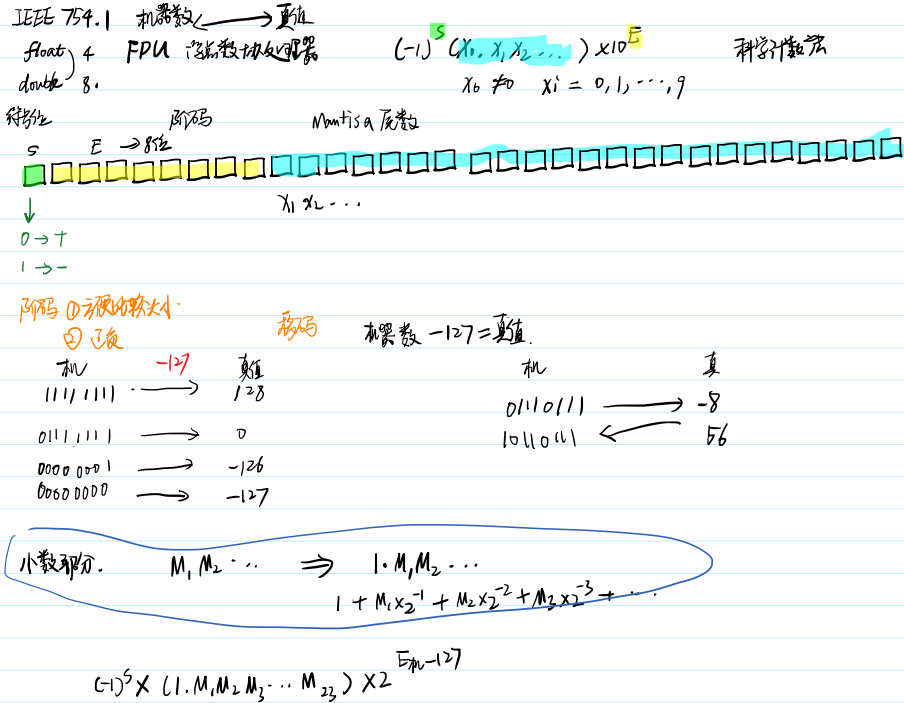 IEEE 754.1 机器数 ⟷ 真值
float 4 FPU 浮点数协处理器 (-1)^S (X₀. X₁ X₂ ...) ×10^E 科学计数法
double 8. X₀ ≠0 Xi = 0, 1, ..., 9
符号位 阶码 Mantisa 尾数
S E → 8位
X₁ X₂ ...
↓
0 → +
1 → -
阶码 ①方便比较大小.
② 正负 移码 机器数 -127 = 真值.
机 -127 真值 机 真
11111111 → 128
01110111 → -8
01111111 → 0
10110111 ← 56
00000001 → -126
00000000 → -127
小数部分. M₁ M₂ ... ⇒ 1.M₁M₂ ...
1 + M₁×2⁻¹ + M₂×2⁻² + M₃×2⁻³ + ...
(-1)^S × (1.M₁M₂M₃...M₂₃) ×2^E机-127